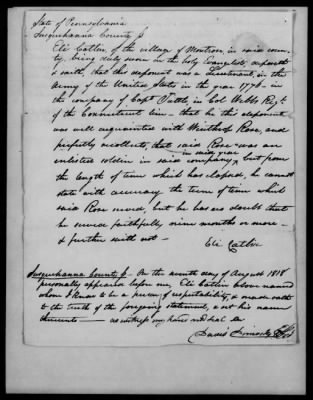 State of Pennsylvania
Susquehanna County ß
Eli Catlin, of the village of Montrose in said coun-
ty, being duly sworn on the holy Evangelists, deposeth
& saith, that this deponent was a Lieutenant, in the
Army of the United States in the year 1776 - in
the company of Capt. Tuttle, in Col Webbs Regt.
of the Connecticut line - that he this deponent
was well acquainted with Winthrop Rose, and
perfectly recollects, that said Rose was an
in said year
enlisted soldier in said company, but from
the length of time which has elapsed, he cannot
state with accuracy the term of time which
said Rose served, but he has no doubt that
he served faithfully nine months or more -
& further saith not -
Eli Catlin
Susquehanna County ß - On the day of August 1818
personally appeared before me, Eli Catlin above named
whom I know to be a person of respectability, & made oath
to the truth of the foregoing statement, & set his name
thereunto - as witness my hand and seal
Davis Dimock